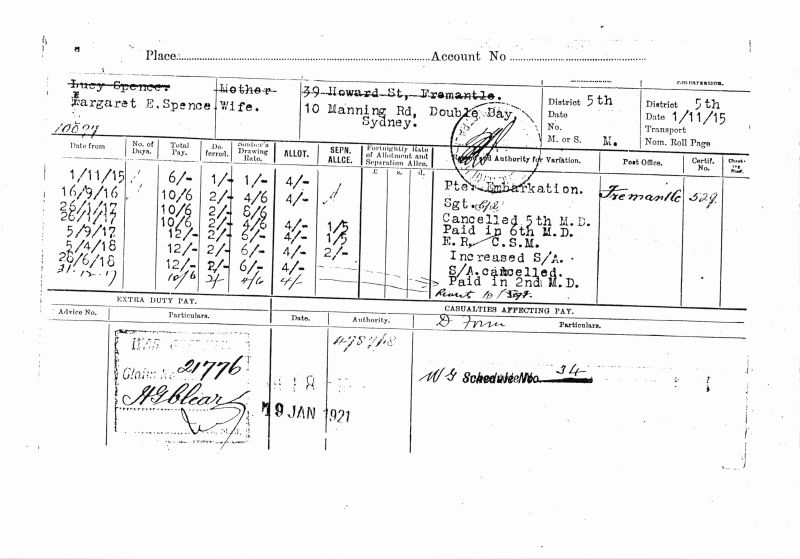 Place Account No
Lucy Spencer Mother 39 Howard St, Fremantle.
Margaret E. Spence. Wife. 10 Manning Rd, Double Bay,
Sydney.
District 5th
Date
No.
M. or S. M.
Embarkation.
District 5th
Date 1/11/15
Transport
Nom. Roll Page
Date from No. of Days. Total Pay. Deferred. Soldier's Drawing Rate. ALLOT. SEPN. ALLCE. Fortnightly Rate of Allotment and Separation Allce. £ s. d. and Authority for Variation. Post Office. Certif. No.
1/11/15 6/- 1/- 1/- 4/- Pte. Embarkation. Fremantle 529
16/9/16 10/6 2/- 4/6 4/- Sgt.
26/1/17 10/6 2/- 8/6 Cancelled 5th M.D.
26/1/17 10/6 2/- 4/6 4/- 1/5 Paid in 6th M.D.
5/9/17 12/- 2/- 6/- 4/- 1/5 E.R. C.S.M.
5/4/18 12/- 2/- 6/- 4/- 2/- Increased S/A.
26/6/18 12/- 2/- 6/- 4/- S/A. cancelled.
31.12.17 10/6 2/- 4/6 4/- Paid in 2nd M.D.
Revert to Sgt.
EXTRA DUTY PAY. CASUALTIES AFFECTING PAY.
Advice No. Particulars. Date. Authority. D Form Particulars.
WAR
Claim No 21776
19 JAN 1921
W G Schedule No. 34